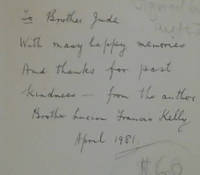 To Brother Jude
With many happy memories
And thanks for past
kindness — from the author
Brother Lucian Francis Kelly
April 1981